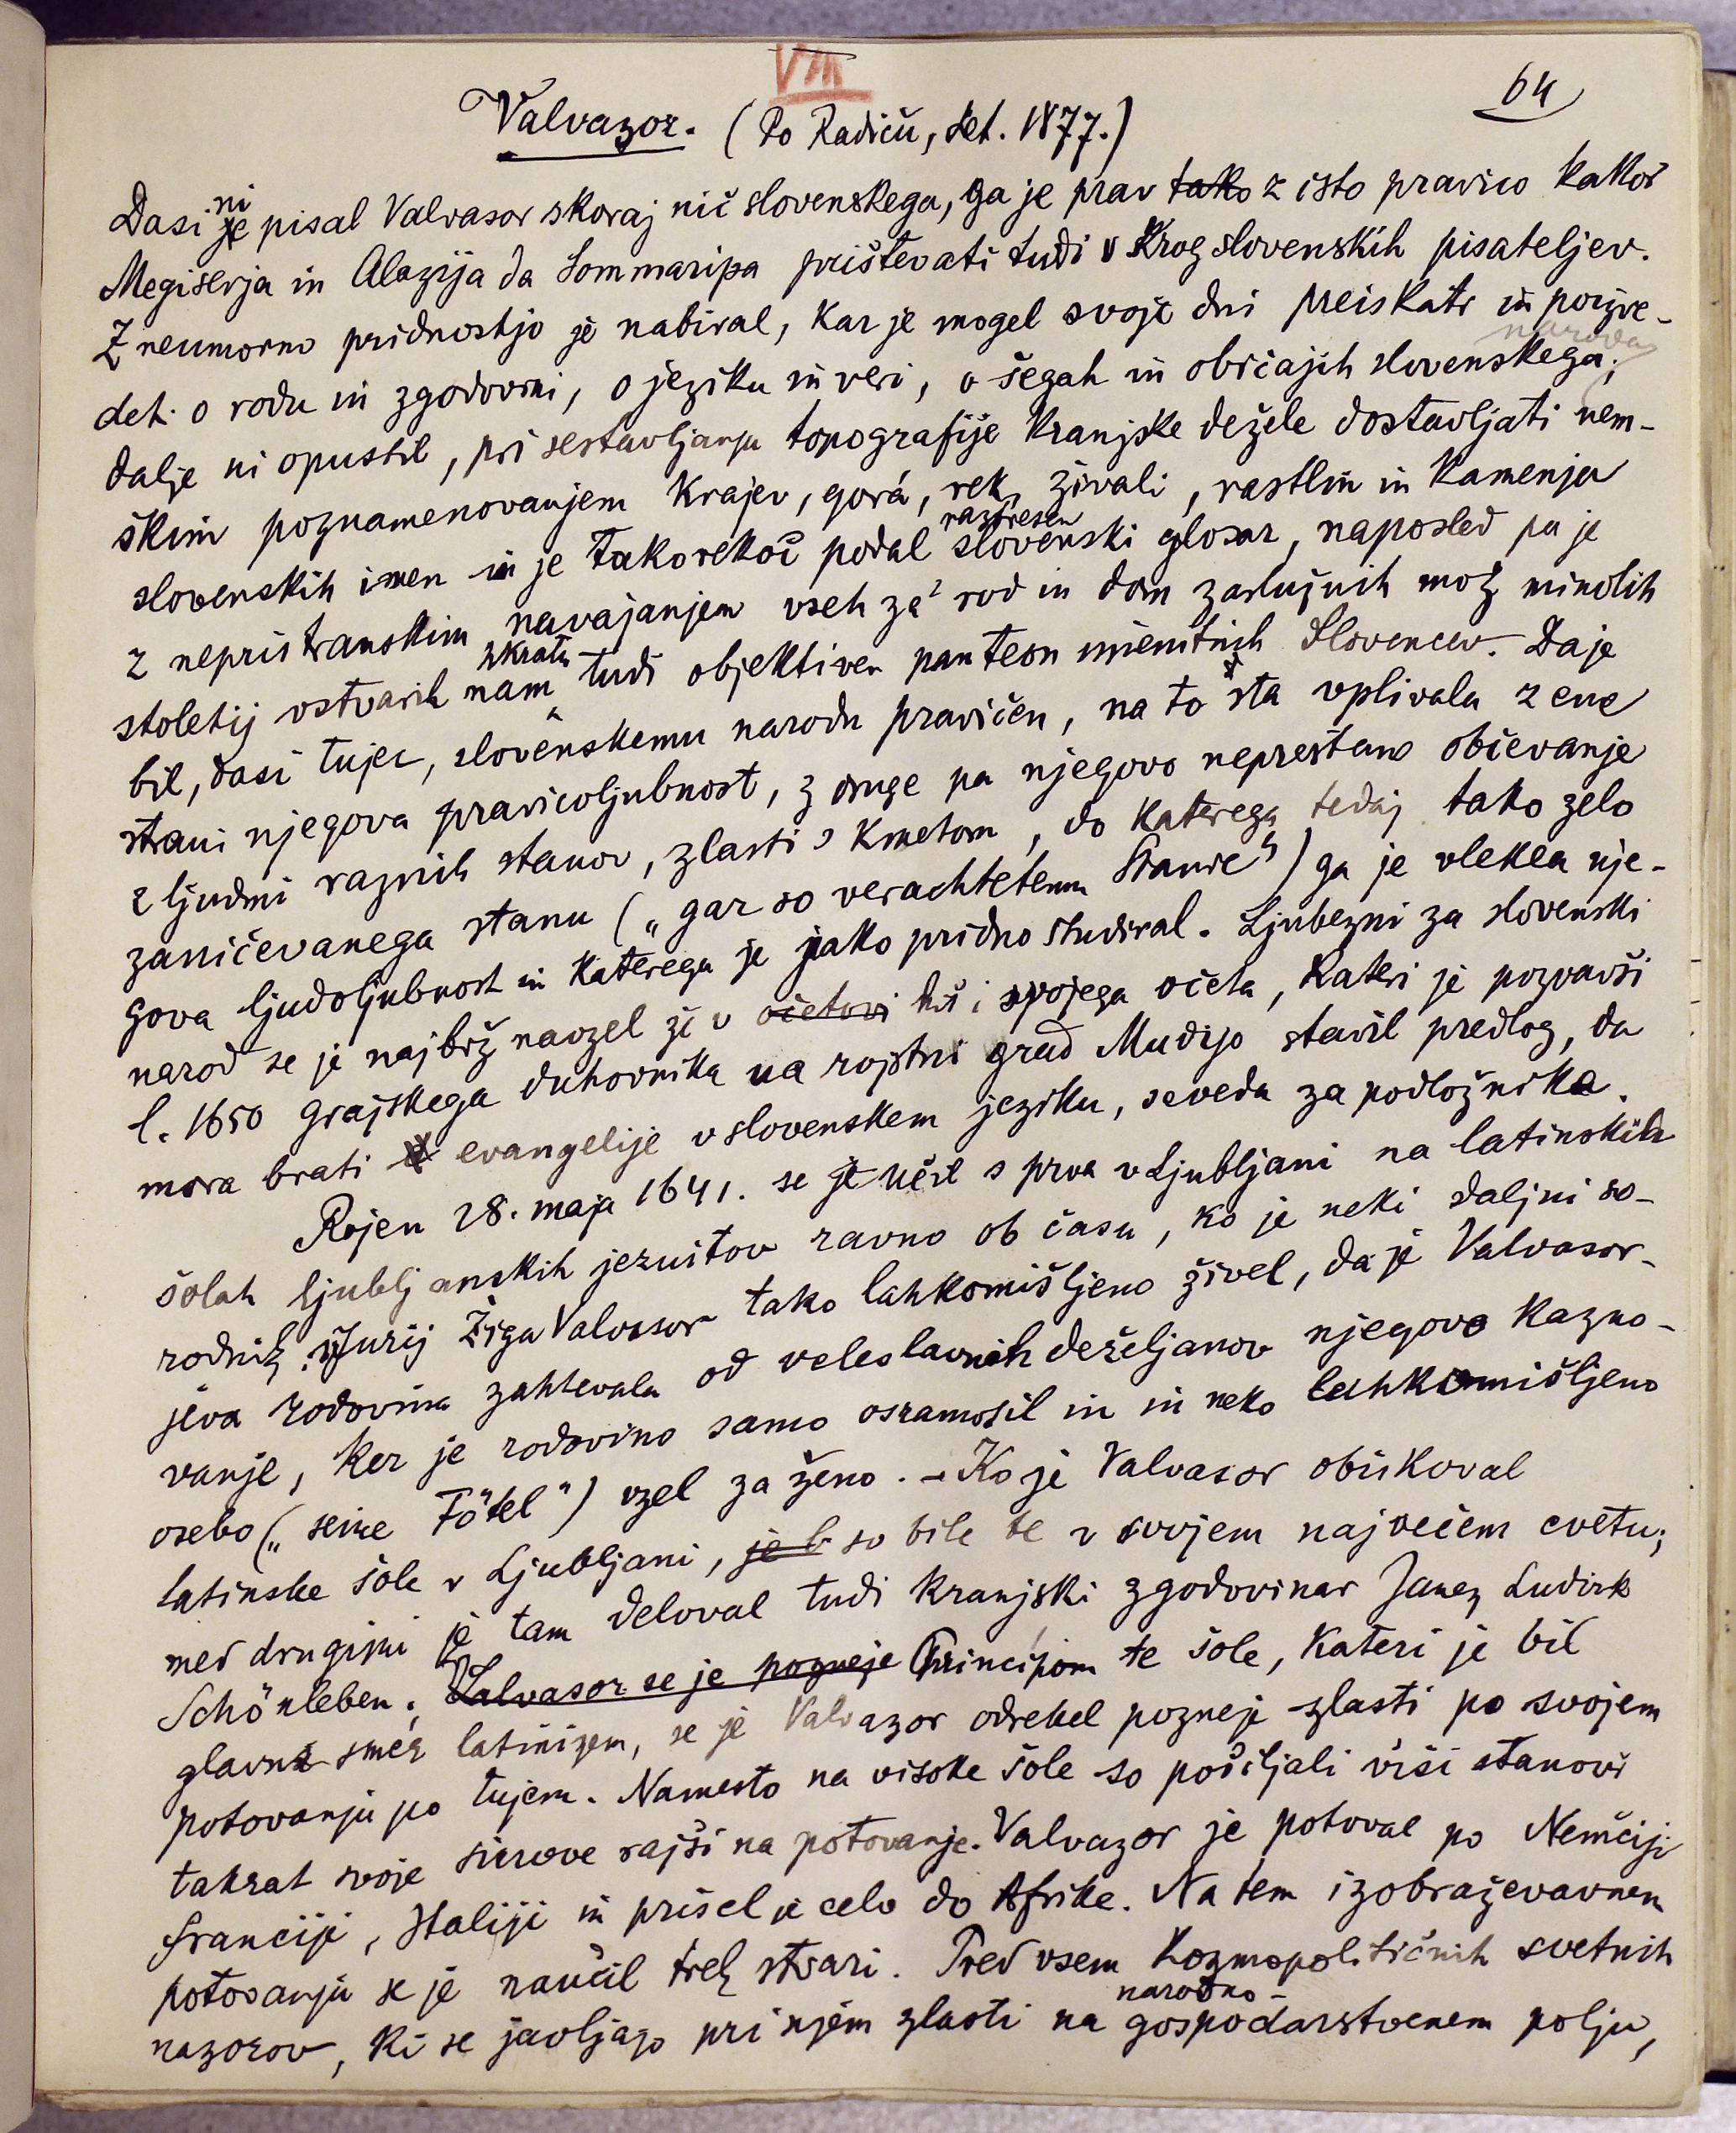 VIII
64
Valvazor. (Po Radiču, Let. 1877.)
Dasi ni pisal Valvasor skoraj nič slovenskega, ga je prav tako z isto pravico kakor
Megiserja in Alazija da Sommaripa prištevati tudi v krog slovenskih pisateljev.
Z neumorno pridnostjo je nabiral, kar je mogel svoje dni preiskati in poizve-
deti o rodu in zgodovini, o jeziku in veri, o šegah in običajih slovenskega naroda;
dalje ni opustil, pri sestavljanju topografije kranjske dežele dostavljati nem-
škim poznamenovanjem krajev, gorá, rek, živali, rastlin in kamenja
slovenskih imen in je takorekoč podal raztresen slovenski glosar, naposled pa je
z nepristranskim navajanjem vseh za rod in dom zaslužnih mož minolih
stoletij ustvaril nam zkratka tudi objektiven panteon imenitnih Slovencev. Da je
bil, dasi tujec, slovenskemu narodu pravičen, na to sta vplivala z ene
strani njegova pravicoljubnost, z druge pa njegovo neprestano občevanje
z ljudmi raznih stanov, zlasti s kmetom, do katerega tedaj tako zelo
zaničevanega stanu („gar so verachtetem Stande“) ga je vlekla nje-
gova ljudoljubnost in katerega je jako pridno študiral. Ljubezni za slovenski
narod se je najbrž navzel že v očetovi hiši svojega očeta, kateri je pozvavši
l. 1650 grajskega duhovnika na rojstni grad Mudijo stavil predlog, da
mora brati evangelije v slovenskem jeziku, seveda za podložnike.
Rojen 28. maja 1641. se je učil s prva v Ljubljani na latinskih
šolah ljubljanskih jezuitov ravno ob času, ko je neki daljni so-
rodnik Jurij Žiga Valvasor tako lahkomišljeno živel, da je Valvasor-
jeva rodovina zahtevala od veleslavnih deželjanov njegovo kazno-
vanje, ker je rodovino samo osramotil in in neko lahkomišljeno
osebo („seine Fötel“) vzel za ženo. – Ko je Valvasor obiskoval
latinske šole v Ljubljani, je b so bile te v svojem največem cvetu;
med drugimi je tam deloval tudi kranjski zgodovinar Janez Ludvik
Schönleben. Valvasor se je pozneje Principom te šole, kateri je bil
glavna smer latinizem, se je Valvazor odrekel pozneje zlasti po svojem
potovanju po tujem. Namesto na visoke šole so pošiljali viši stanovi
takrat svoje sinove rajši na potovanje. Valvazor je potoval po Nemčiji
Franciji, Italiji in prišel je celo do Afrike. Na tem izobraževavnem
potovanju se je naučil treh stvari. Pred vsem kozmopolitičnih svetnih
nazorov, ki se javljajo pri njem zlasti na narodno-gospodarstvenem polju,